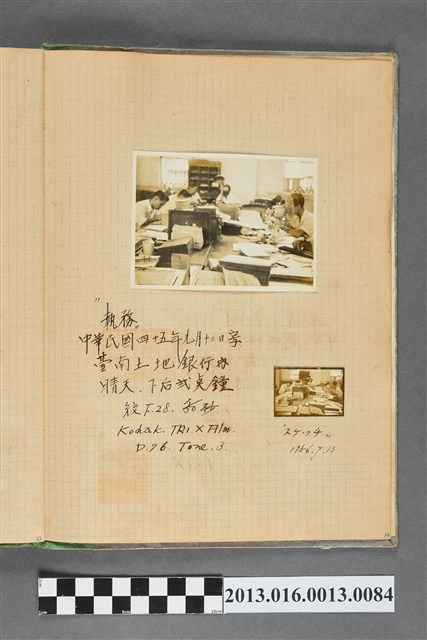 "執務"
中華民國四十五年九月十日寫
臺南土地銀行內
晴天、下后弍点鐘
絞 F.28.
Kodak. TRI. X Film.
D.76. Tone. 3.
"スケッチ"
1956.9.13.
2013.016.0013.0084